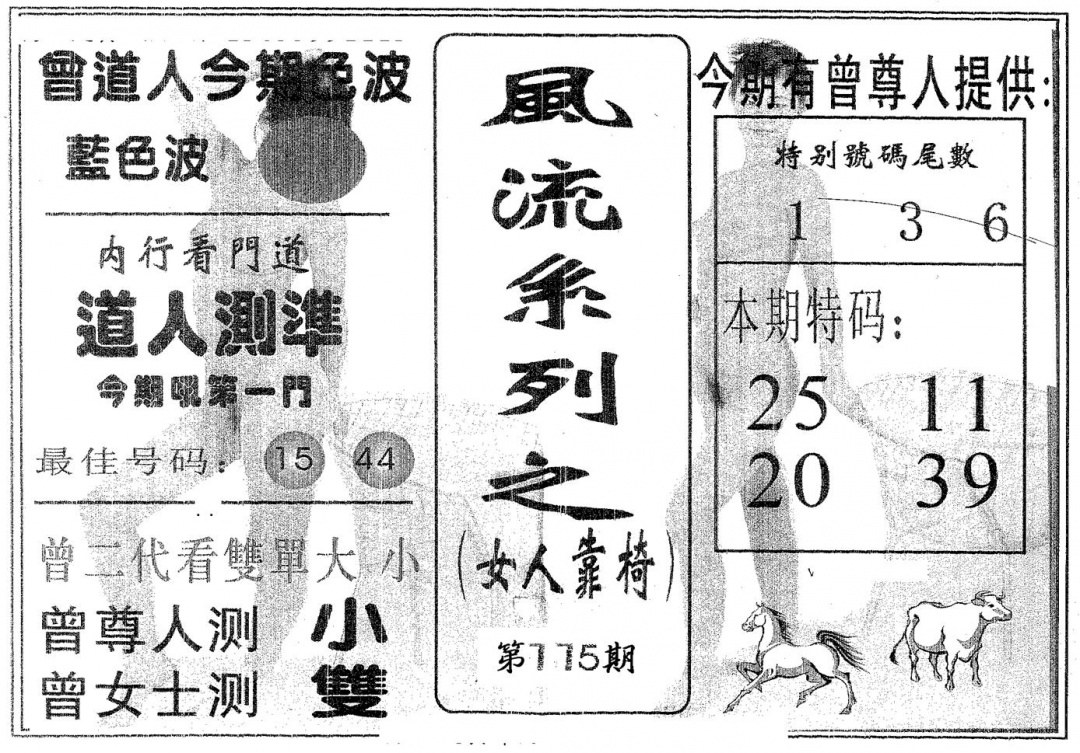 曾道人今期色波
藍色波
内行看門道
道人測準
今期吼第一門
最佳号码：15 44
曾二代看雙單大小
曾尊人测 小
曾女士测 雙
風流系列之
（女人靠椅）
第115期
今期有曾尊人提供：
特别號碼尾數
1 3 6
本期特码：
25 11
20 39